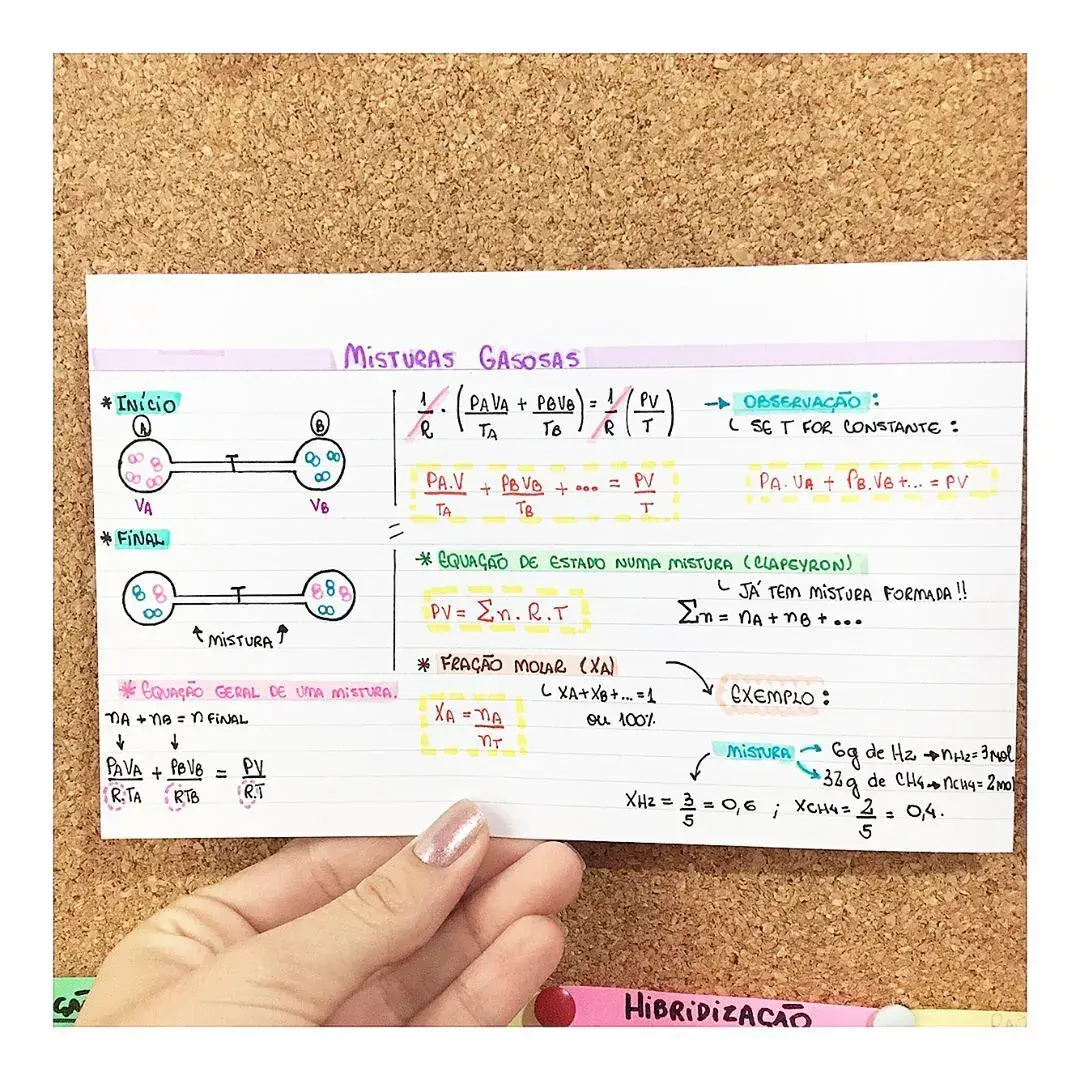 MISTURAS GASOSAS
* INÍCIO
A B
VA VB
* FINAL
MISTURA
* EQUAÇÃO GERAL DE UMA MISTURA.
nA + nB = n FINAL
PAVA/R.TA + PBVB/RTB = PV/R.T
1/R . (PAVA/TA + PBVB/TB) = 1/R (PV/T)
PA.V/TA + PBVB/TB + ... = PV/T
→ OBSERVAÇÃO:
SE T FOR CONSTANTE:
PA.VA + PB.VB + ... = PV
* EQUAÇÃO DE ESTADO NUMA MISTURA (CLAPEYRON)
JÁ TEM MISTURA FORMADA!!
PV = Σn.R.T
Σn = nA + nB + ...
* FRAÇÃO MOLAR (XA)
XA+XB+...=1
OU 100%
XA = nA/nT
EXEMPLO:
MISTURA → 6g de H2 → nH2 = 3 mol
→ 32g de CH4 → nCH4 = 2 mol
XH2 = 3/5 = 0,6 ; XCH4 = 2/5 = 0,4.
HIBRIDIZAÇÃO